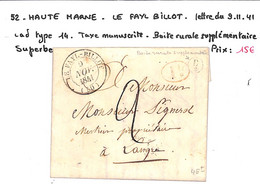 52 - HAUTE MARNE - LE FAYL BILLOT. lettre du 9.11.41
cad type 14. Taxe manuscrite - Boite rurale supplémentaire
Superbe Prix: 15€
Boite rurale supplémentaire
FAYL-BILLOT
9
NOV.
(50)
2
Monsieur
Monsieur
propriétaire
à Langres